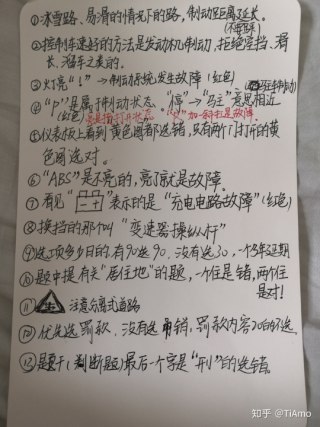 ①冰雪路、易滑的情况下的路,制动距离延长。
②控制车速好的方法是发动机制动,拒绝空挡、滑
长。
③灯亮"!"→制动系统发生故障(红色)
④"P"是属于制动状态。"停"→"驻车"意思相近
(红色)
⑤仪表板上看到黄色图都选错,只有两个门打开的黄
色图选对。
⑥"ABS"是不亮的,亮了就是故障。
⑦看见"- +"表示的是"充电电路故障"(红色)
⑧换挡的那个叫"变速器操纵杆"
⑨选项多少日的,有90选90,没有选30,一个多年延期
⑩题中提有关"居住地"的题,一个住是错,两个住
是对!
⑪注意分离式道路
⑫优先选罚款,没有选吊销,罚款内容20的不选
⑬题干(判断题)最后一个字是"刑"的选错。
知乎 @TiAmo